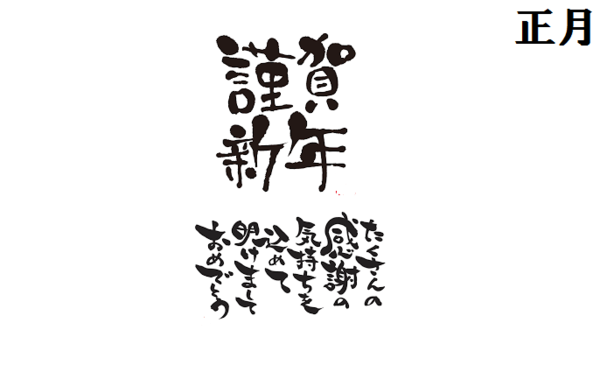 正月
謹賀
新年
たくさんの
感謝の
気持ちを
込めて
明けまして
おめでとう